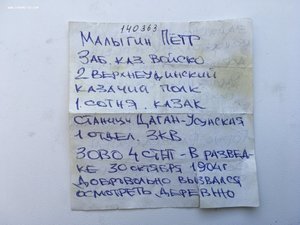 140363
Малыгин Петр
Заб. каз. войско
2 Верхнеудинский
казачий полк
1 сотня. казак
станицы Цаган-Усунская
1 отдел. ЗКВ
ЗОВО 4 СТЕП - В развед-
ке 30 октября 1904г
добровольно вызвался
осмотреть деревню